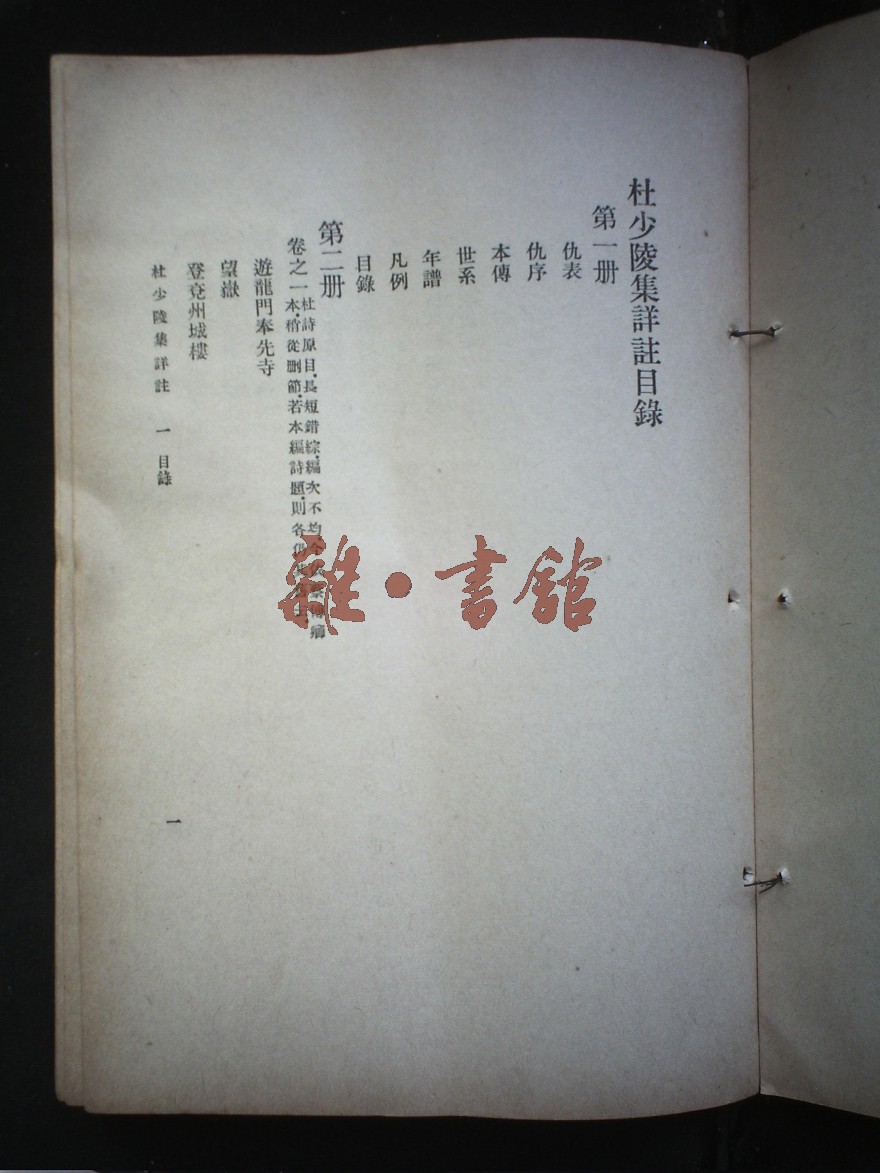 杜少陵集詳註目錄
第一册
仇表
仇序
本傳
世系
年譜
凡例
目錄
第二册
卷之一
杜詩原目，長短錯綜，編次不均，今
本，稍從刪節，若本編詩題，則各仍
遊龍門奉先寺
望嶽
登兗州城樓
杜少陵集詳註 一 目錄
一
雜·書館